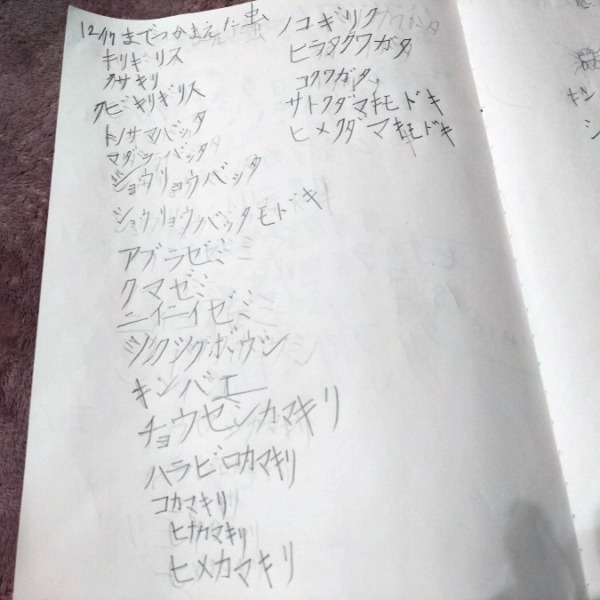 12/17までつかまえた虫
キリギリス
クサキリ
クビキリギリス
トノサマバッタ
マダラバッタ
ショウリョウバッタ
ショウリョウバッタモドキ
アブラゼミ
クマゼミ
ニイニイゼミ
ツクツクボウシ
キンバエ
チョウセンカマキリ
ハラビロカマキリ
コカマキリ
ヒナカマキリ
ヒメカマキリ
ノコギリクワガタ
ヒラタクワガタ
コクワガタ
サトクダマキモドキ
ヒメクダマキモドキ
キン
シ